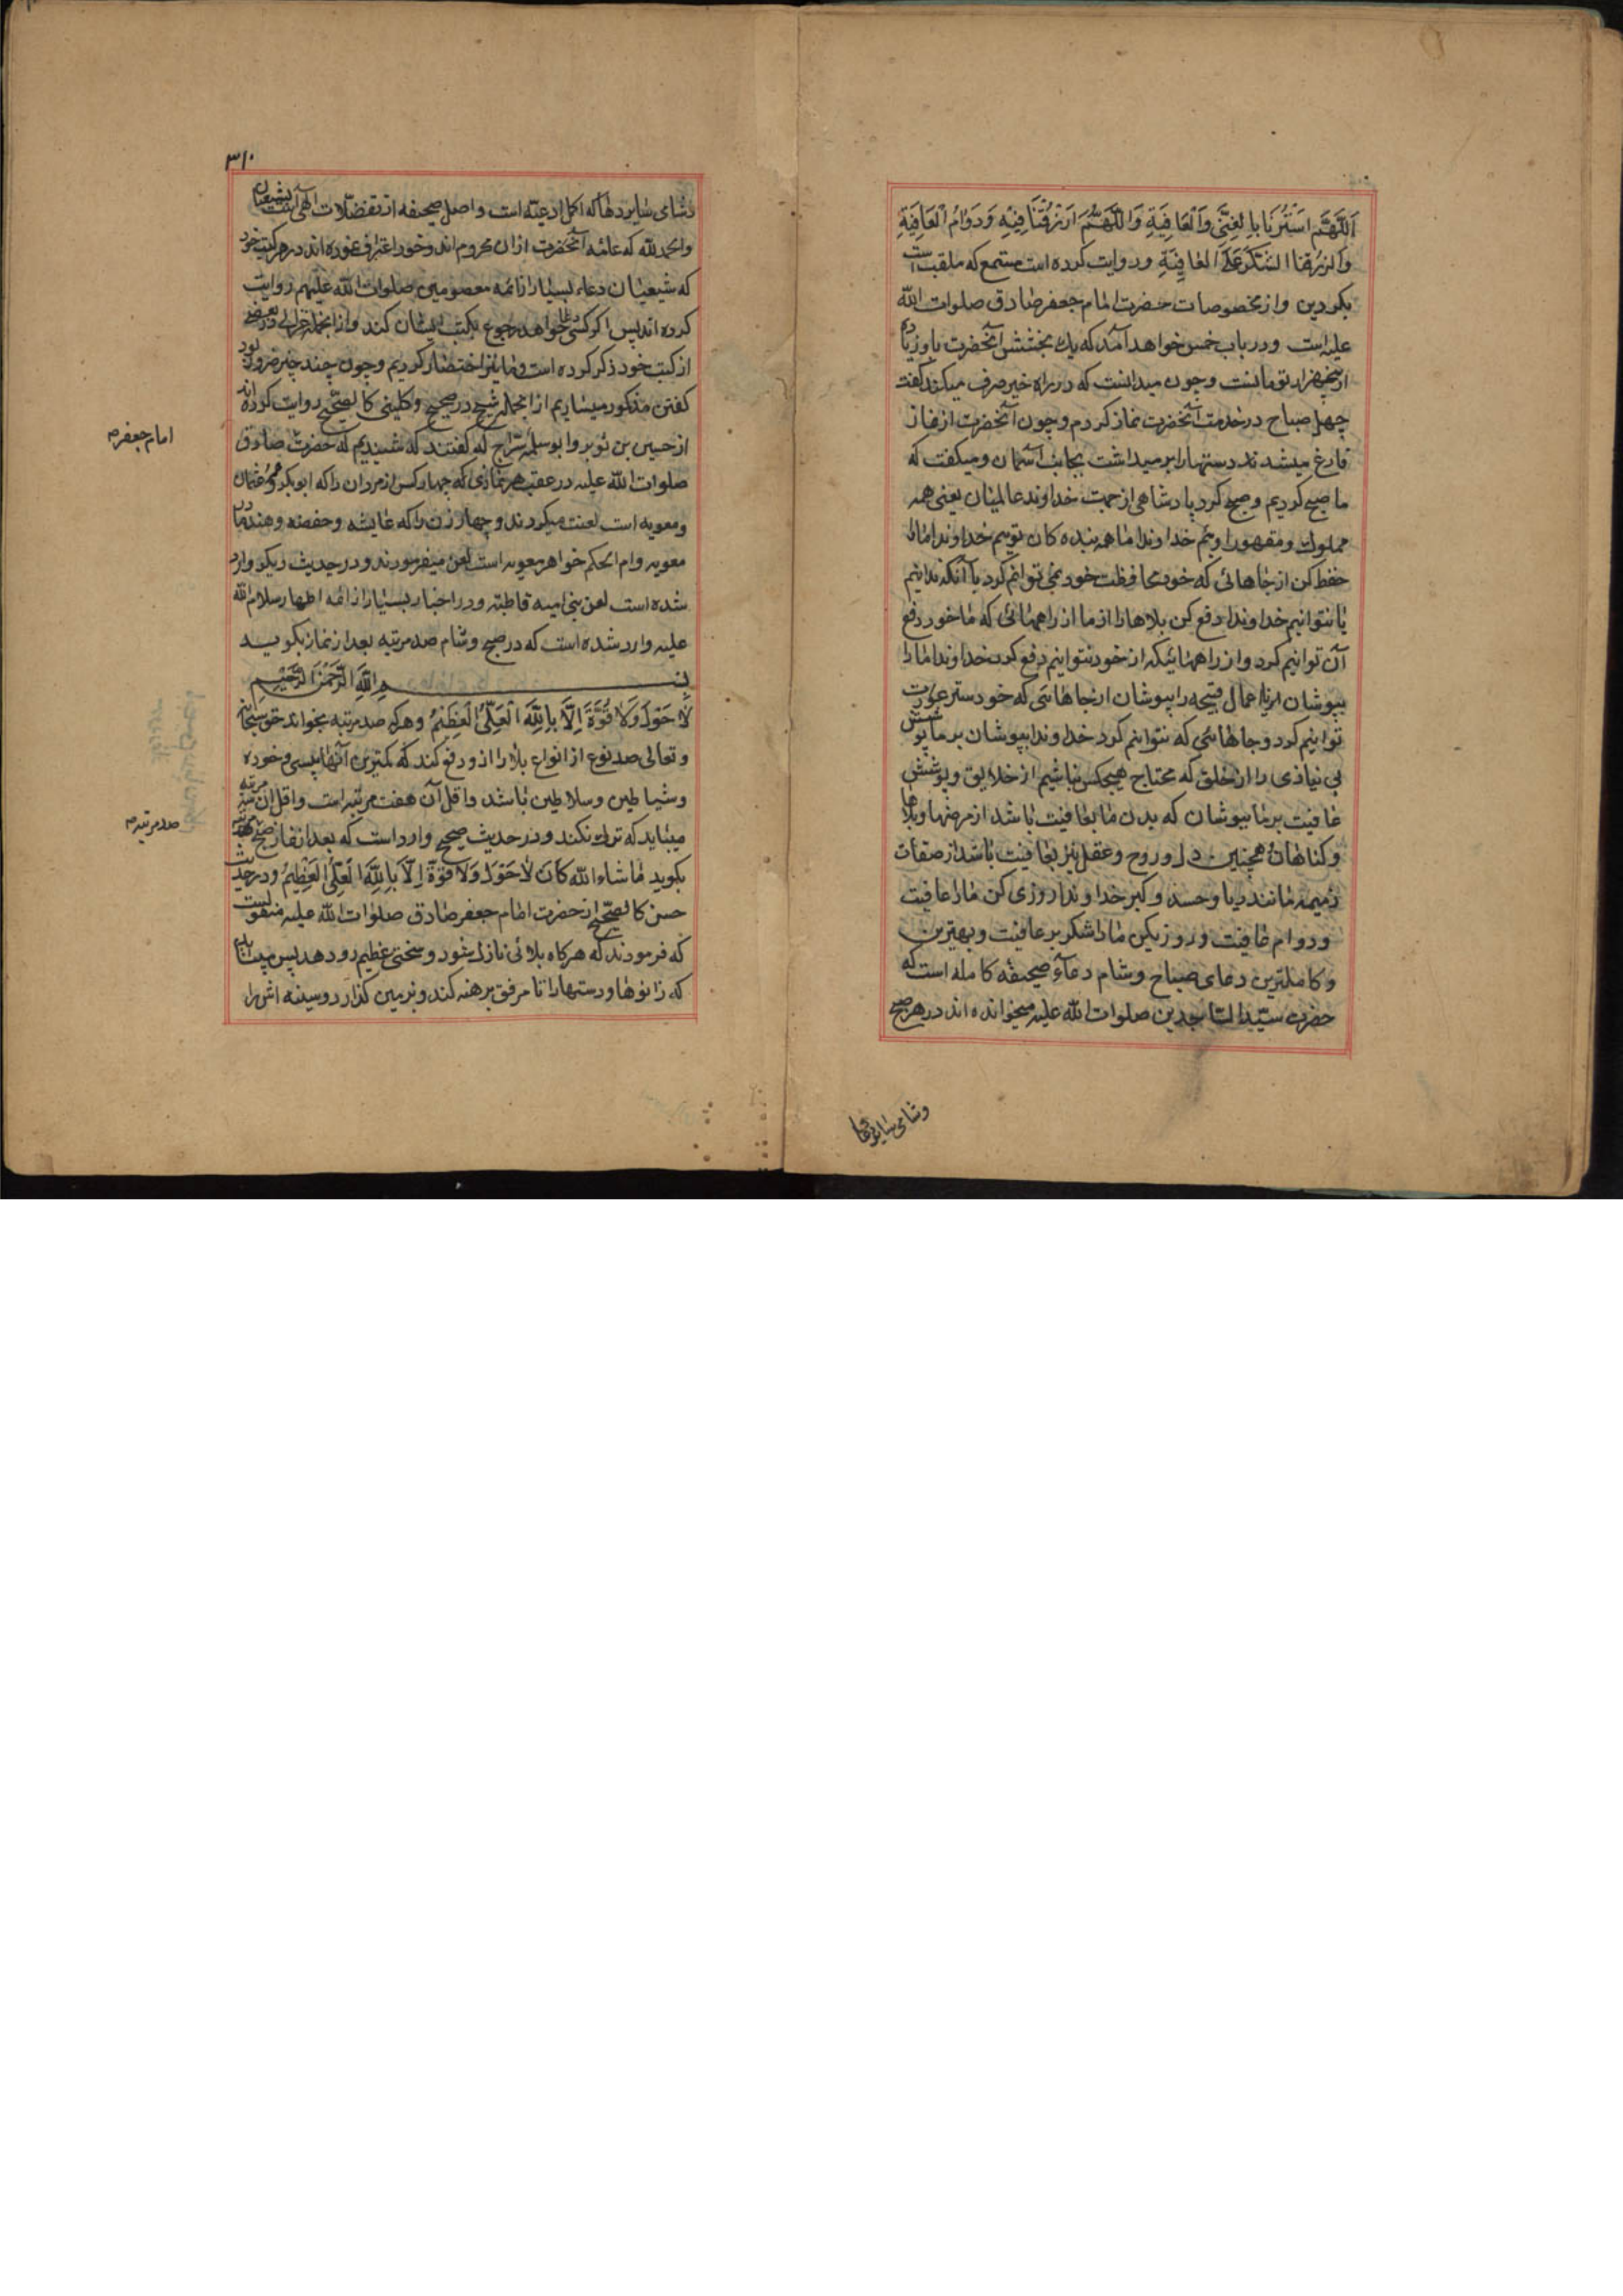 اَللَّهُمَّ اسْتُرْنَا بِالْغِنَى وَالْعَافِيَةِ وَاللَّهُمَّ ارْزُقْنَا فِيْهِ وَدَوَامُ الْعَافِيَةِ
وَارْزُقْنَا الشُّكْرَ عَلَى الْعَافِيَةِ وروایت کرده است مسمع که ملقبست
بکردین واز مخصوصات حضرت امام جعفر صادق صلوات الله
علیه است ودر باب خمس خواهد آمد که یک بخشش آنحضرت باو زیاده
از پنجهزار تومانست وچون میدانست که در راه خیر صرف میکند گفت
چهل صباح در خدمت آنحضرت نماز کردم وچون آنحضرت از نماز
فارغ میشدند دستها را بر میداشت بجانب آسمان ومیکفت که
ما صبح کردیم وصبح کرد پادشاهی از جهت خداوند عالمیان یعنی همه
مملوک ومقهور اوئیم خداوندا ما همه بنده کان توییم خداوندا ما را
حفظ کن از جاهائی که خود محافظت خود نمی توانیم کرد یا آنکه ندانیم
یا نتوانیم خداوندا دفع کن بلاها را از ما از راههائی که ما خود دفع
آن توانیم کرد واز راههائیکه از خود نتوانیم دفع کرد خداوندا ما را
بپوشان اعمال قبیحه را بپوشان از جاهائی که خود ستر عورت
توانیم کرد وجاهائی که نتوانیم کرد خداوندا بپوشان بر ما پوشش
بی نیازی را از خلق که محتاج هیچکس نباشیم از خلایق وپوشش
عافیت بر ما بپوشان که بدن ما بعافیت باشد از مرضها وبلاها
وکناهان همچنین دل وروح وعقل نیز بعافیت باشد از صفات
ذمیمه مانند ریا وحسد وکبر خداوندا روزی کن ما را عافیت
ودوام عافیت وروزیکن ما را شکر بر عافیت وبهترین
وکاملترین دعای صباح وشام دعآء صحیفه کامله است که
حضرت سیّد الساجدین صلوات الله علیه میخوانده اند در هر صبح
وشامی
۳۱۰
وشامی سایر دعاها که اکمل ادعیه است واصل صحیفه از تفضّلات الهی است بشیعیان
والحمد لله که عامّه آنحضرت ازان محروم اند وخود اعتراف نموده اند در هر کتب خود
که شیعیان دعاء بسیار از ائمه معصومین صلوات الله علیهم روایت
کرده اند پس اگر کسی دعا خواهد رجوع بکتب ایشان کند وازانجمله غزالی در بعضی
از کتب خود ذکر کرده است وما نیز اختصار کردیم وچون چند چیز ضرور بود
کفتن مذکور میسازیم ازانجمله شیخ در صحیح وکلینی کالصحیح روایت کرده اند
از حسین بن ثویر وابو سلمه سرّاج که گفتند که شنیدیم که حضرت صادق
صلوات الله علیه در عقب هر نمازی که چهار کس از مردان را که ابو بکر وعمر وعثمان
ومعویه است لعنت میکردند وچهار زن را که عایشه وحفصه وهند مادر
معویه وام الحکم خواهر معویه است لعن میفرمودند ودر حدیث دیکر وارد
شده است لعن بنی امیه قاطبة ودر اخبار بسیار از ائمه اطهار سلام الله
علیه وارد شده است که در صبح وشام صد مرتبه بعد از نماز بکویید
بِسْمِ اللّٰهِ الرَّحْمٰنِ الرَّحِيْمِ
لَا حَوْلَ وَلَا قُوَّةَ اِلَّا بِاللّٰهِ الْعَلِيِّ الْعَظِيْمِ وهر که صد مرتبه بخواند حق سبحانه
وتعالی صد نوع از انواع بلا را از و دفع کند که کمترین آنها پیسی وخوره
وشیاطین وسلاطین باشد واقل آن هفت مرتبه است واقل ان سه مرتبه
میباید که ترک نکند ودر حدیث صحیح وارد است که بعد از نماز صبح
بکوید ماشاء الله كَانَ لَا حَوْلَ وَلَا قُوَّةَ اِلَّا بِاللّٰهِ الْعَلِيِّ الْعَظِيْمِ ودر حدیث
حسن کالصحیح از حضرت امام جعفر صادق صلوات الله علیه منقولست
که فرمودند که هر کاه بلائی نازل شود وسختی عظیم رو دهد پس میباید
که زانوها ودستها را تا مرفق برهنه کند وبزمین کذارد وسینه اش را
امام جعفرم
صد مرتبه م